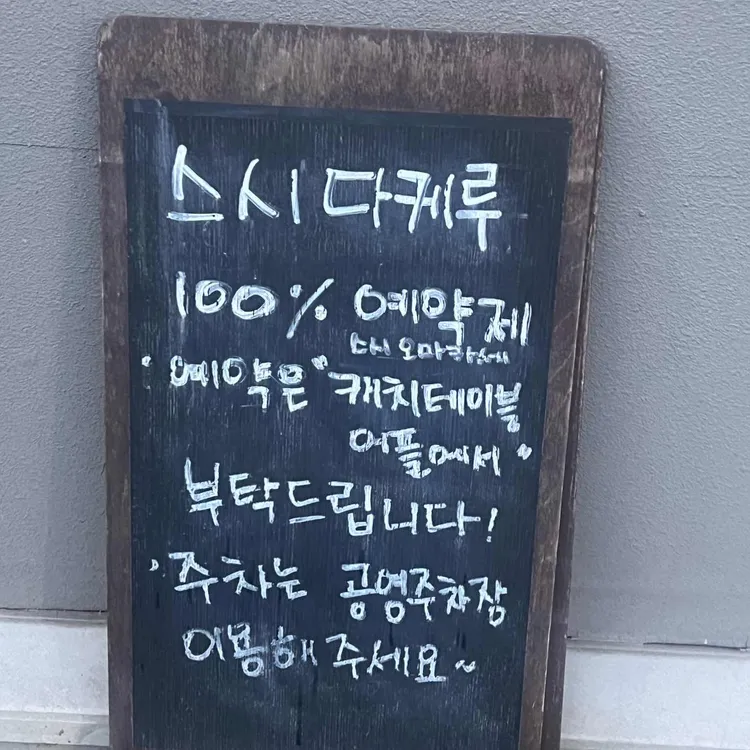 스시 다케루
100% 예약제
스시 오마카세
· 예약은 "캐치테이블
어플에서 ~
부탁드립니다!
· 주차는 공영주차장
이용해 주세요~